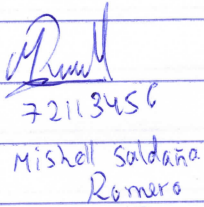 72113456
Mishell Saldaña
Romero